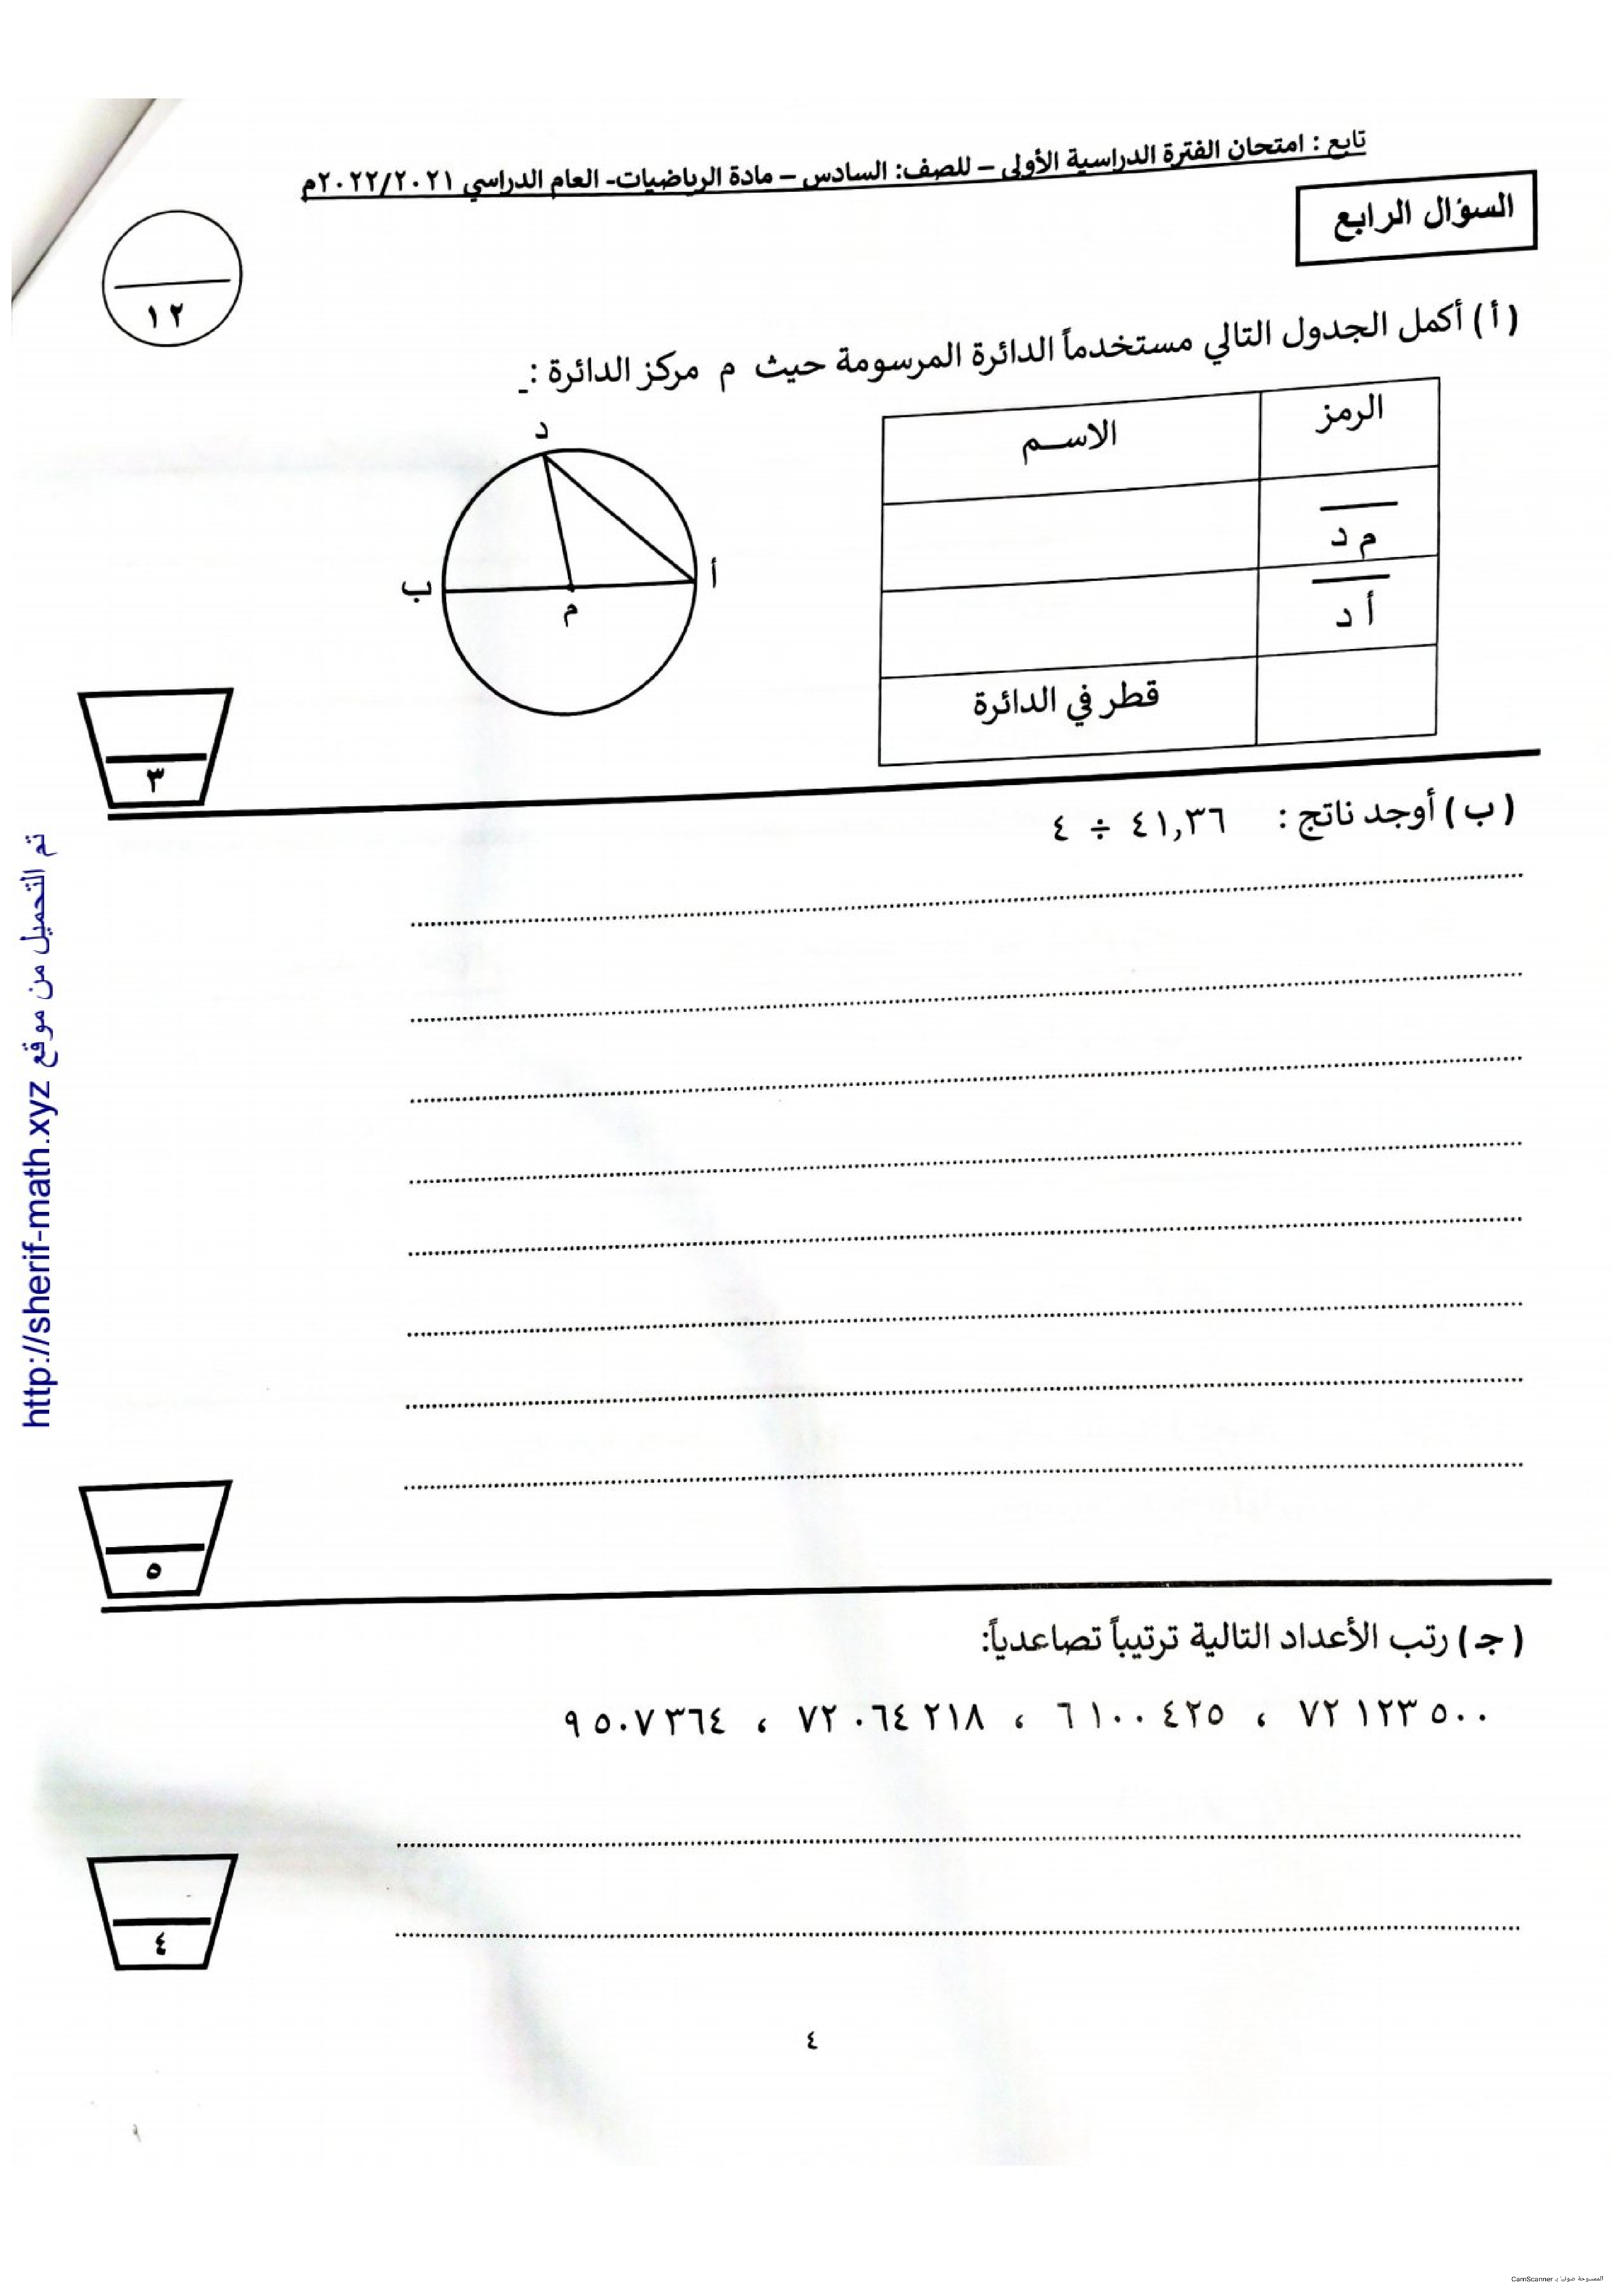 تابع : امتحان الفترة الدراسية الأولى – للصف: السادس – مادة الرياضيات- العام الدراسي ٢٠٢٢/٢٠٢١م
السؤال الرابع
١٢
( أ ) أكمل الجدول التالي مستخدماً الدائرة المرسومة حيث م مركز الدائرة :
الرمز الاسـم
م د
أ د
قطر في الدائرة
د
أ
ب
م
٣
( ب ) أوجد ناتج : ٤١,٣٦ ÷ ٤
٥
( جـ ) رتب الأعداد التالية ترتيباً تصاعدياً:
٧٢ ١٢٣ ٥٠٠ ، ٦ ١٠٠ ٤٢٥ ، ٧٢ ٠٦٤ ٢١٨ ، ٩ ٥٠٧ ٣٦٤
٤
٤
تم التحميل من موقع http://sherif-math.xyz
الممسوحة ضوئيا بـ CamScanner